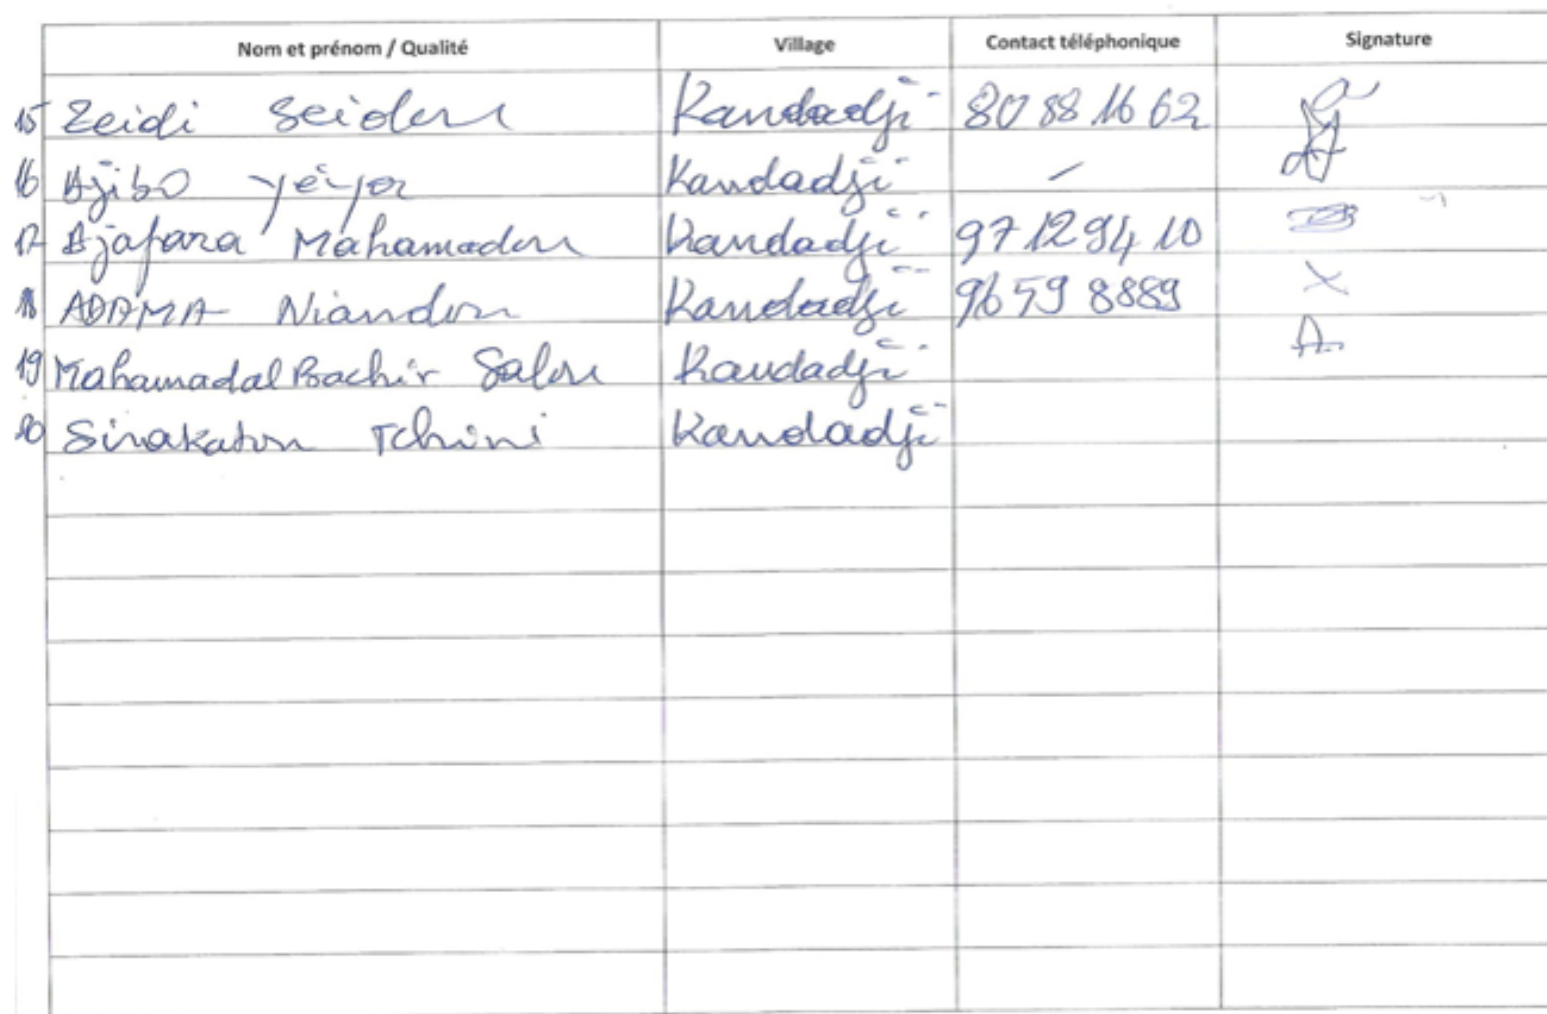 Nom et prénom / Qualité Village Contact téléphonique Signature
15 Zeidi Seidou Kandadji 80 88 16 62
16 Djibo Yéyer Kandadji -
17 Djafara Mahamadou Kandadji 97 12 94 10
18 ADAMA Niandou Kandadji 96 59 8889
19 Mahamadal Bachir Salou Kandadji
20 Sinakatou Tchini Kandadji